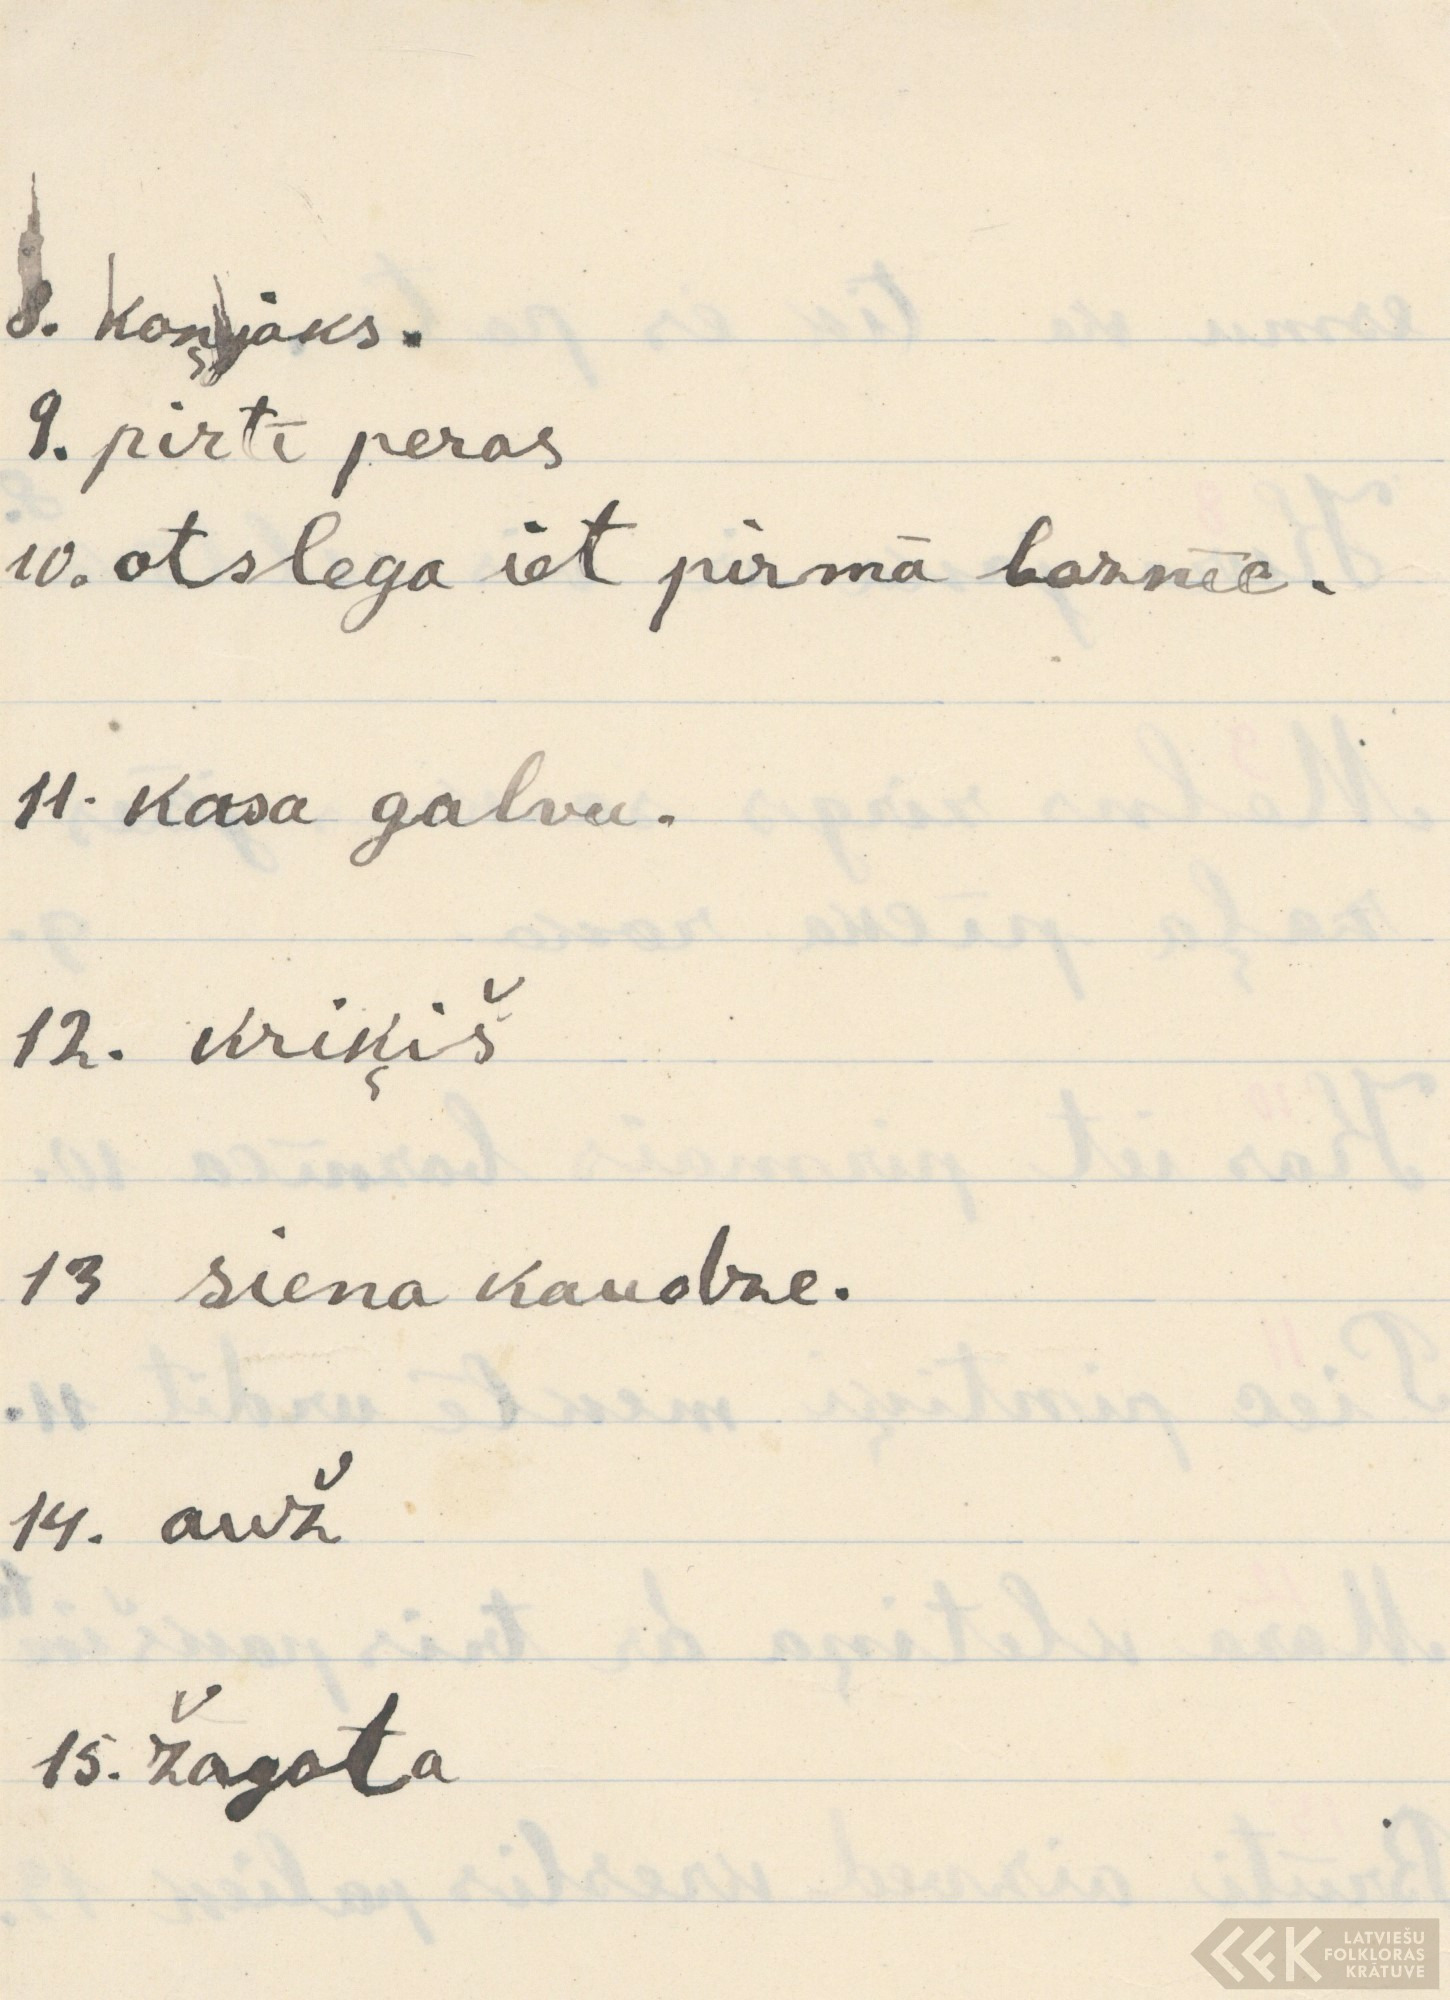 8. koņjaks.
9. pirtī peras
10. atslega iet pirmā baznīc.
11. kasa galvu.
12. kriķiš
13 siena kaudze.
14. auž
15. žagata
LATVIEŠU
FOLKLORAS
KRĀTUVE